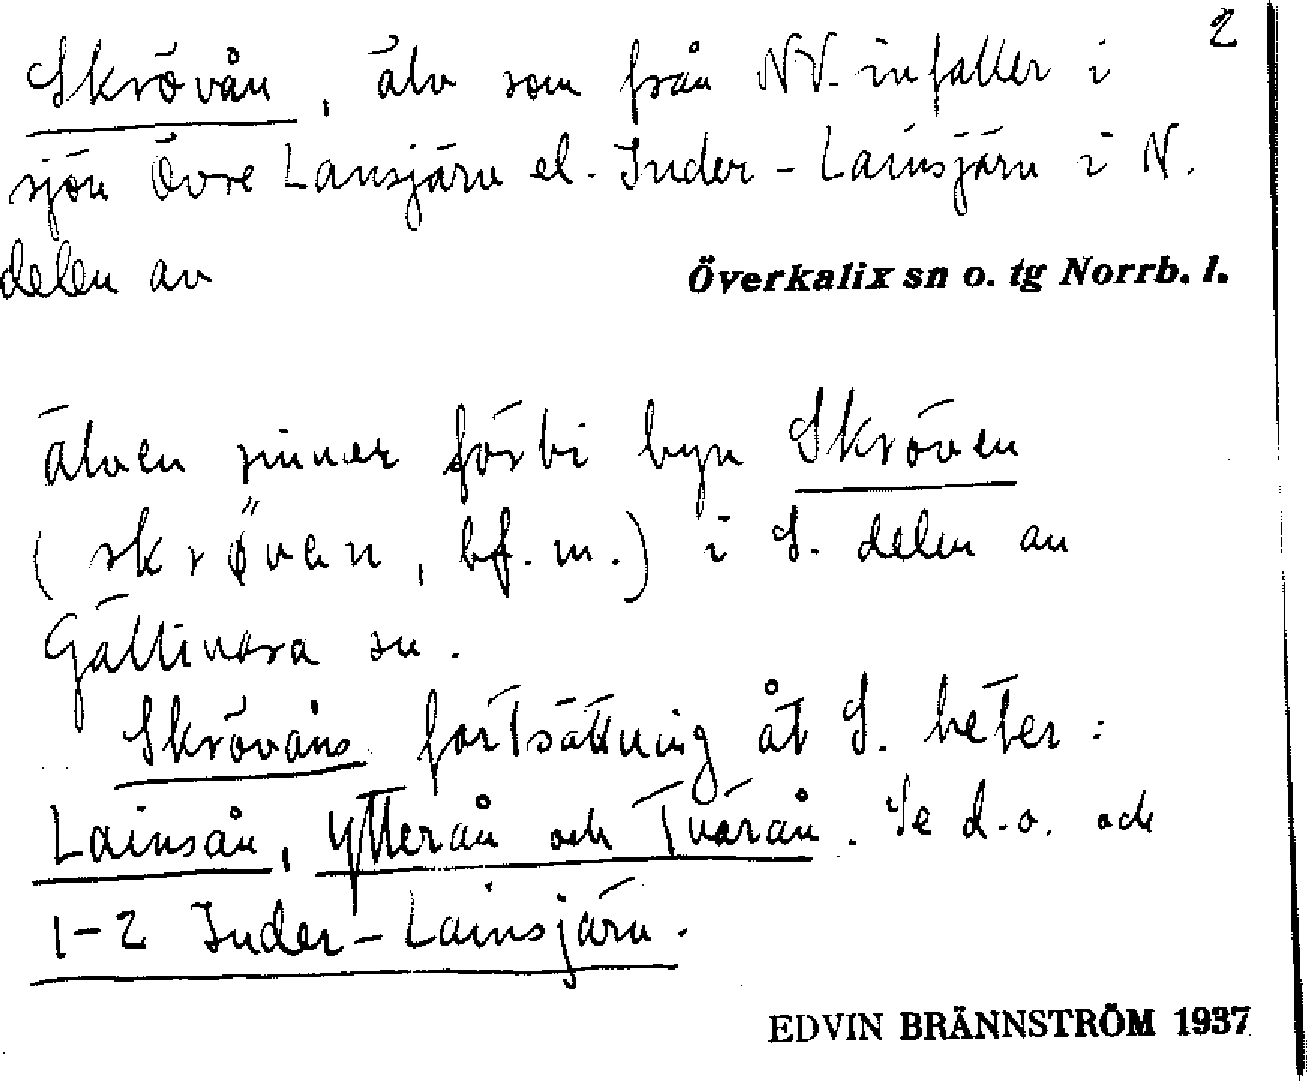 2
Skrövån, älv som från NV. infaller i
sjön Övre Lansjärv el. Inder-Lainsjärv i N.
delen av
Överkalix sn o. tg Norrb. l.
älven rinner förbi byn Skröven
(skrøvan, bf. m.) i S. delen av
Gällivara sn.
Skrövåns fortsättning åt S. heter:
Lainsån, Ytterån och Tvärån. Se d.o. och
1-2 Inder-Lainsjärv.
EDVIN BRÄNNSTRÖM 1937